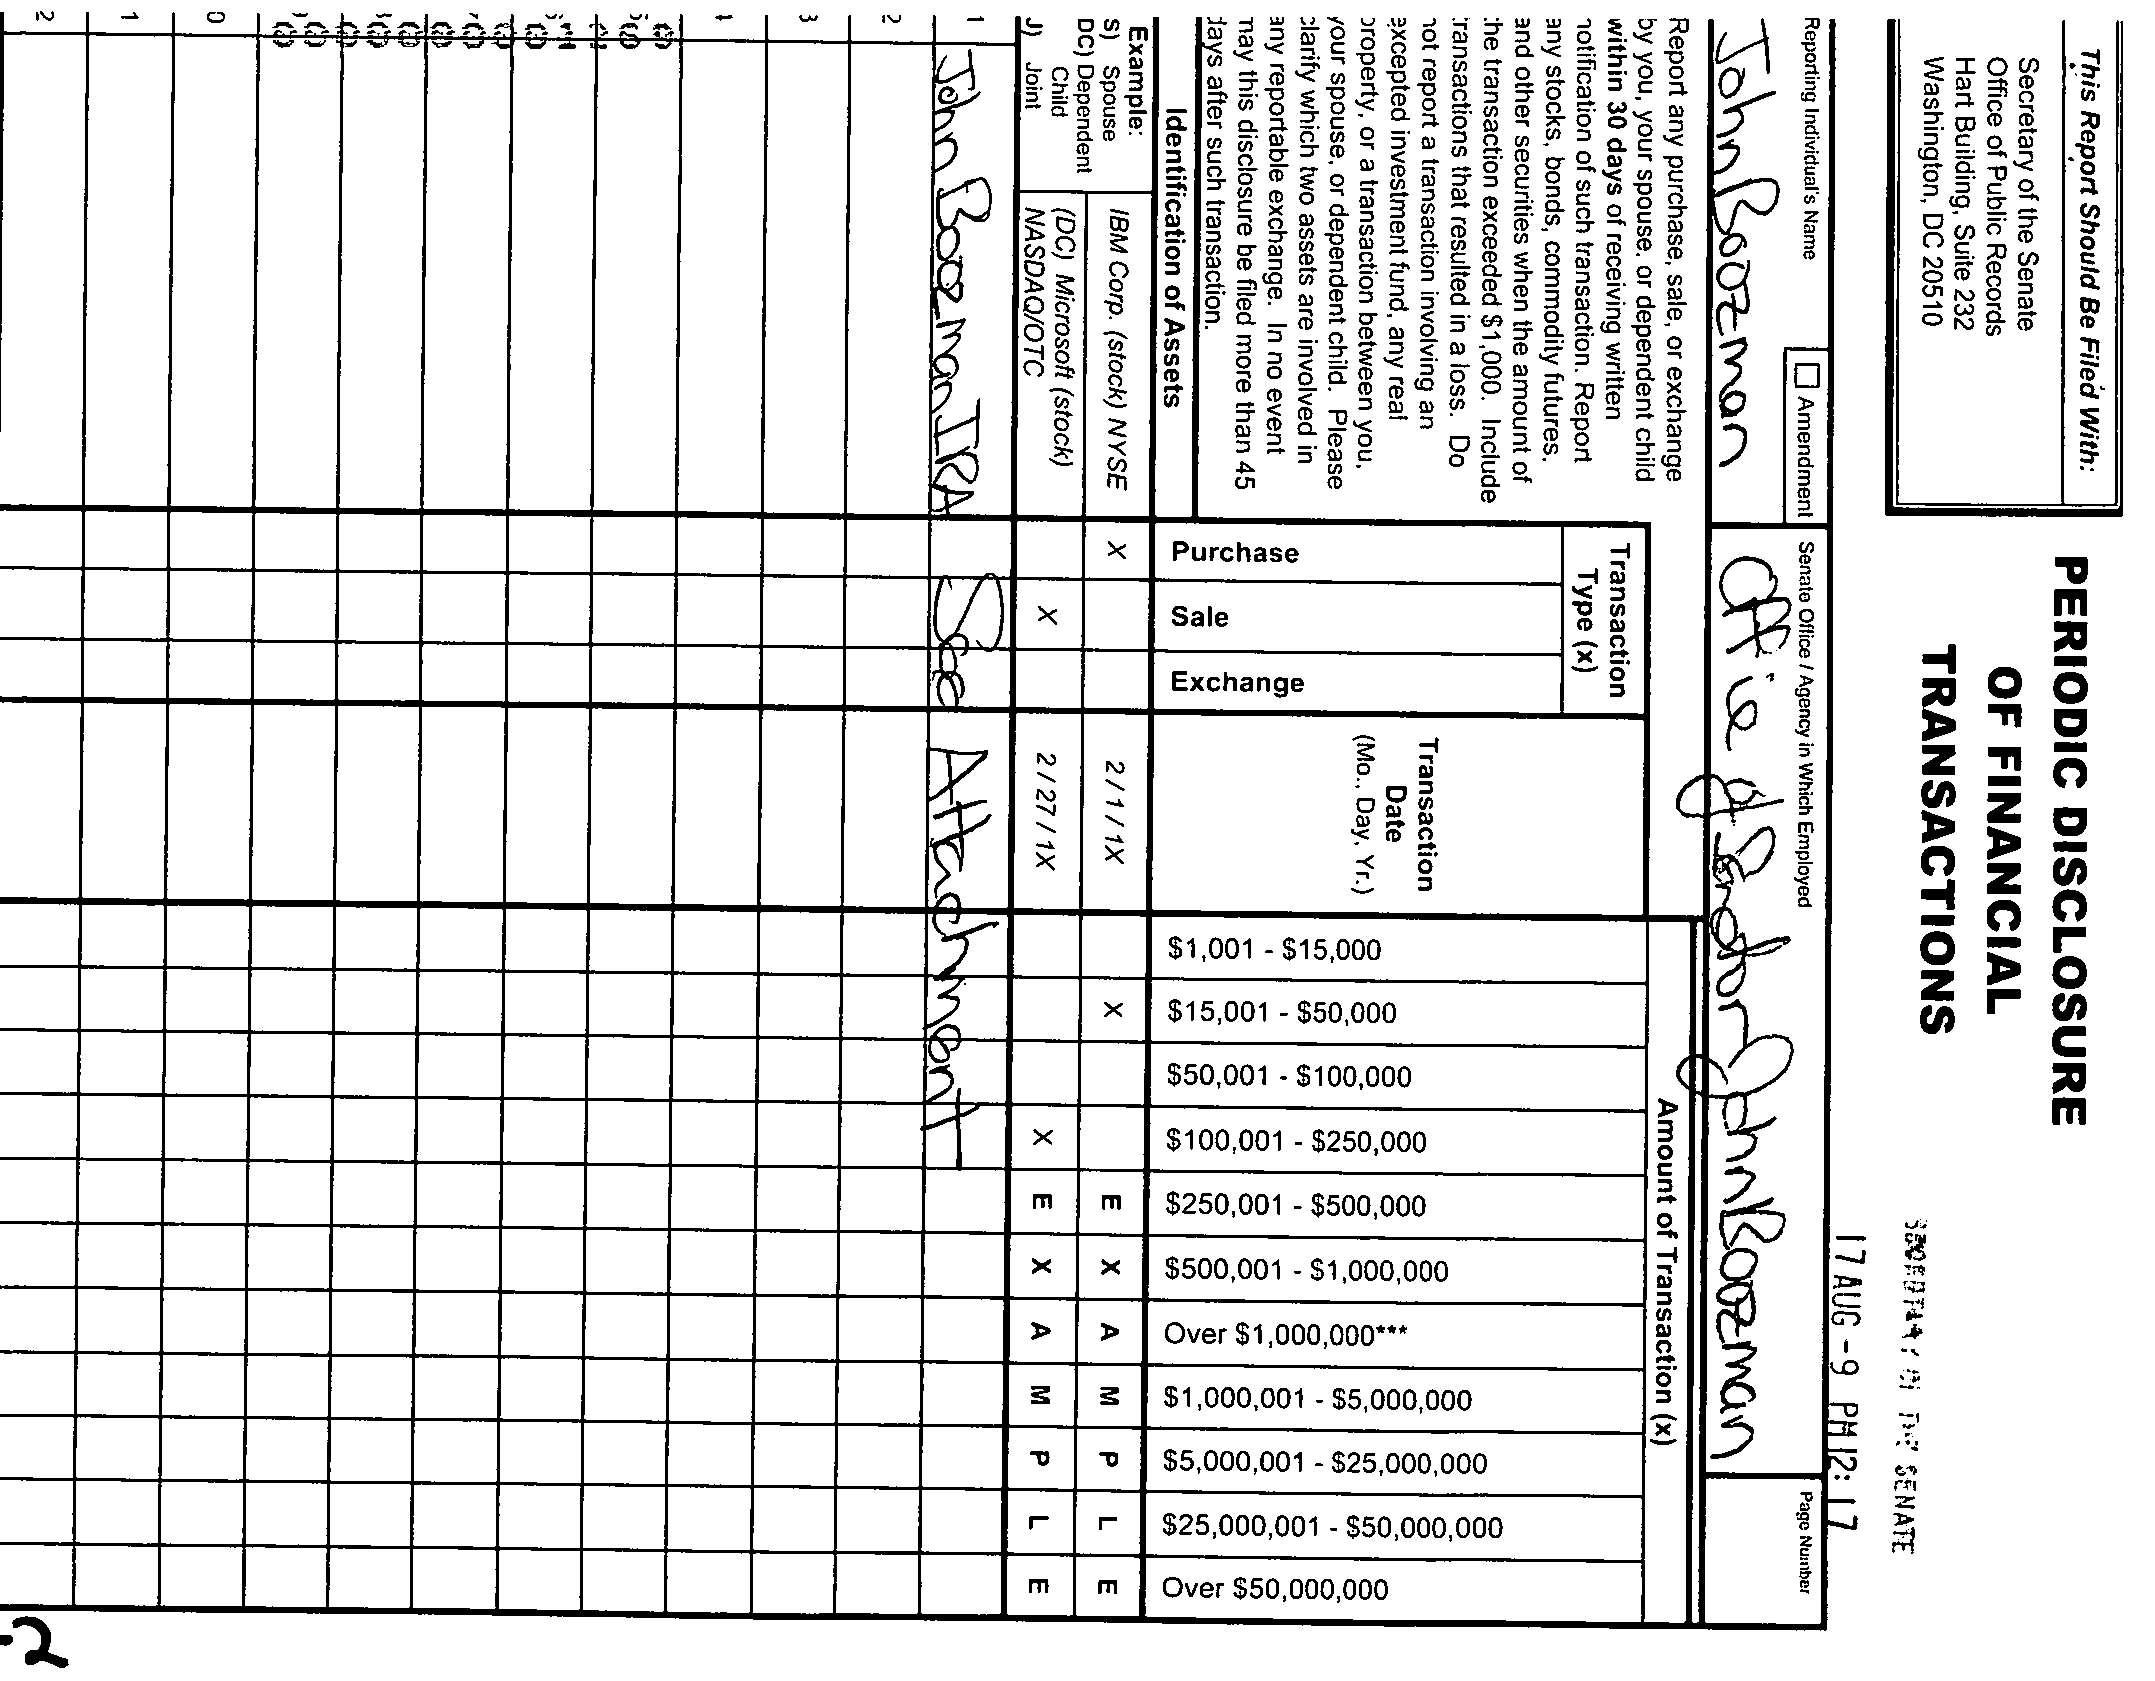 This Report Should Be Filed With:
Secretary of the Senate
Office of Public Records
Hart Building, Suite 232
Washington, DC 20510
PERIODIC DISCLOSURE
OF FINANCIAL
TRANSACTIONS
SENATE
17 AUG -9 PM 12: 17
Reporting Individual's Name
Amendment
Senate Office / Agency in Which Employed
Page Number
John Boozman
Office of Senator John Boozman
Report any purchase, sale, or exchange
by you, your spouse, or dependent child
within 30 days of receiving written
notification of such transaction. Report
any stocks, bonds, commodity futures,
and other securities when the amount of
the transaction exceeded $1,000. Include
transactions that resulted in a loss. Do
not report a transaction involving an
excepted investment fund, any real
property, or a transaction between you,
your spouse, or dependent child. Please
clarify which two assets are involved in
any reportable exchange. In no event
may this disclosure be filed more than 45
days after such transaction.
Identification of Assets
Transaction
Type (x)
Purchase
Sale
Exchange
Transaction
Date
(Mo., Day, Yr.)
Amount of Transaction (x)
$1,001 - $15,000
$15,001 - $50,000
$50,001 - $100,000
$100,001 - $250,000
$250,001 - $500,000
$500,001 - $1,000,000
Over $1,000,000***
$1,000,001 - $5,000,000
$5,000,001 - $25,000,000
$25,000,001 - $50,000,000
Over $50,000,000
Example:
S) Spouse
DC) Dependent
Child
J) Joint
IBM Corp. (stock) NYSE X 2 / 1 / 1X X E X A M P L E
(DC) Microsoft (stock)
NASDAQ/OTC X 2 / 27 / 1X X E X A M P L E
1 John Boozman IRA See Attachment
2
3
0
1
2
-2